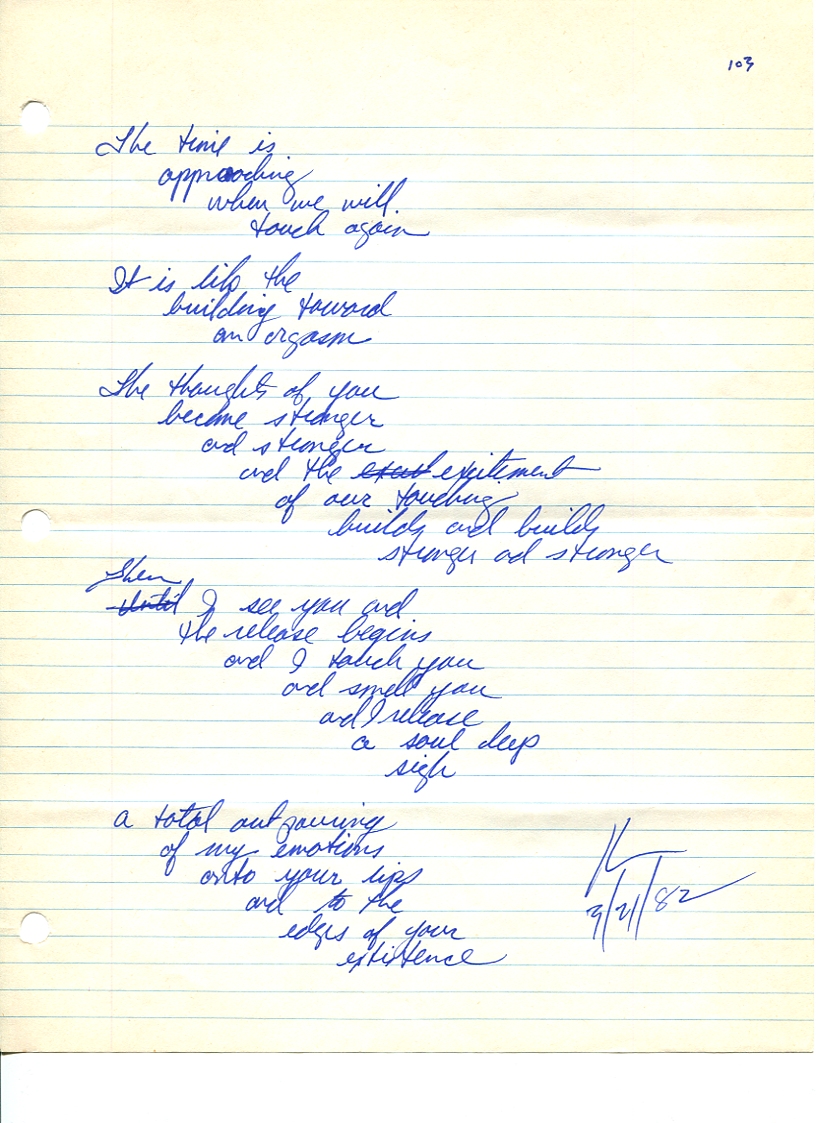 103
The time is
approaching
when we will
touch again
It is like the
building toward
an orgasm
The thoughts of you
become stronger
and stronger
and the excitement
of our touching
builds and builds
stronger and stronger
Then
Until I see you and
the release begins
and I touch you
and smell you
and I release
a soul deep
sigh
a total outpouring
of my emotions
onto your lips
and to the
edges of your
existence
K
3/21/82